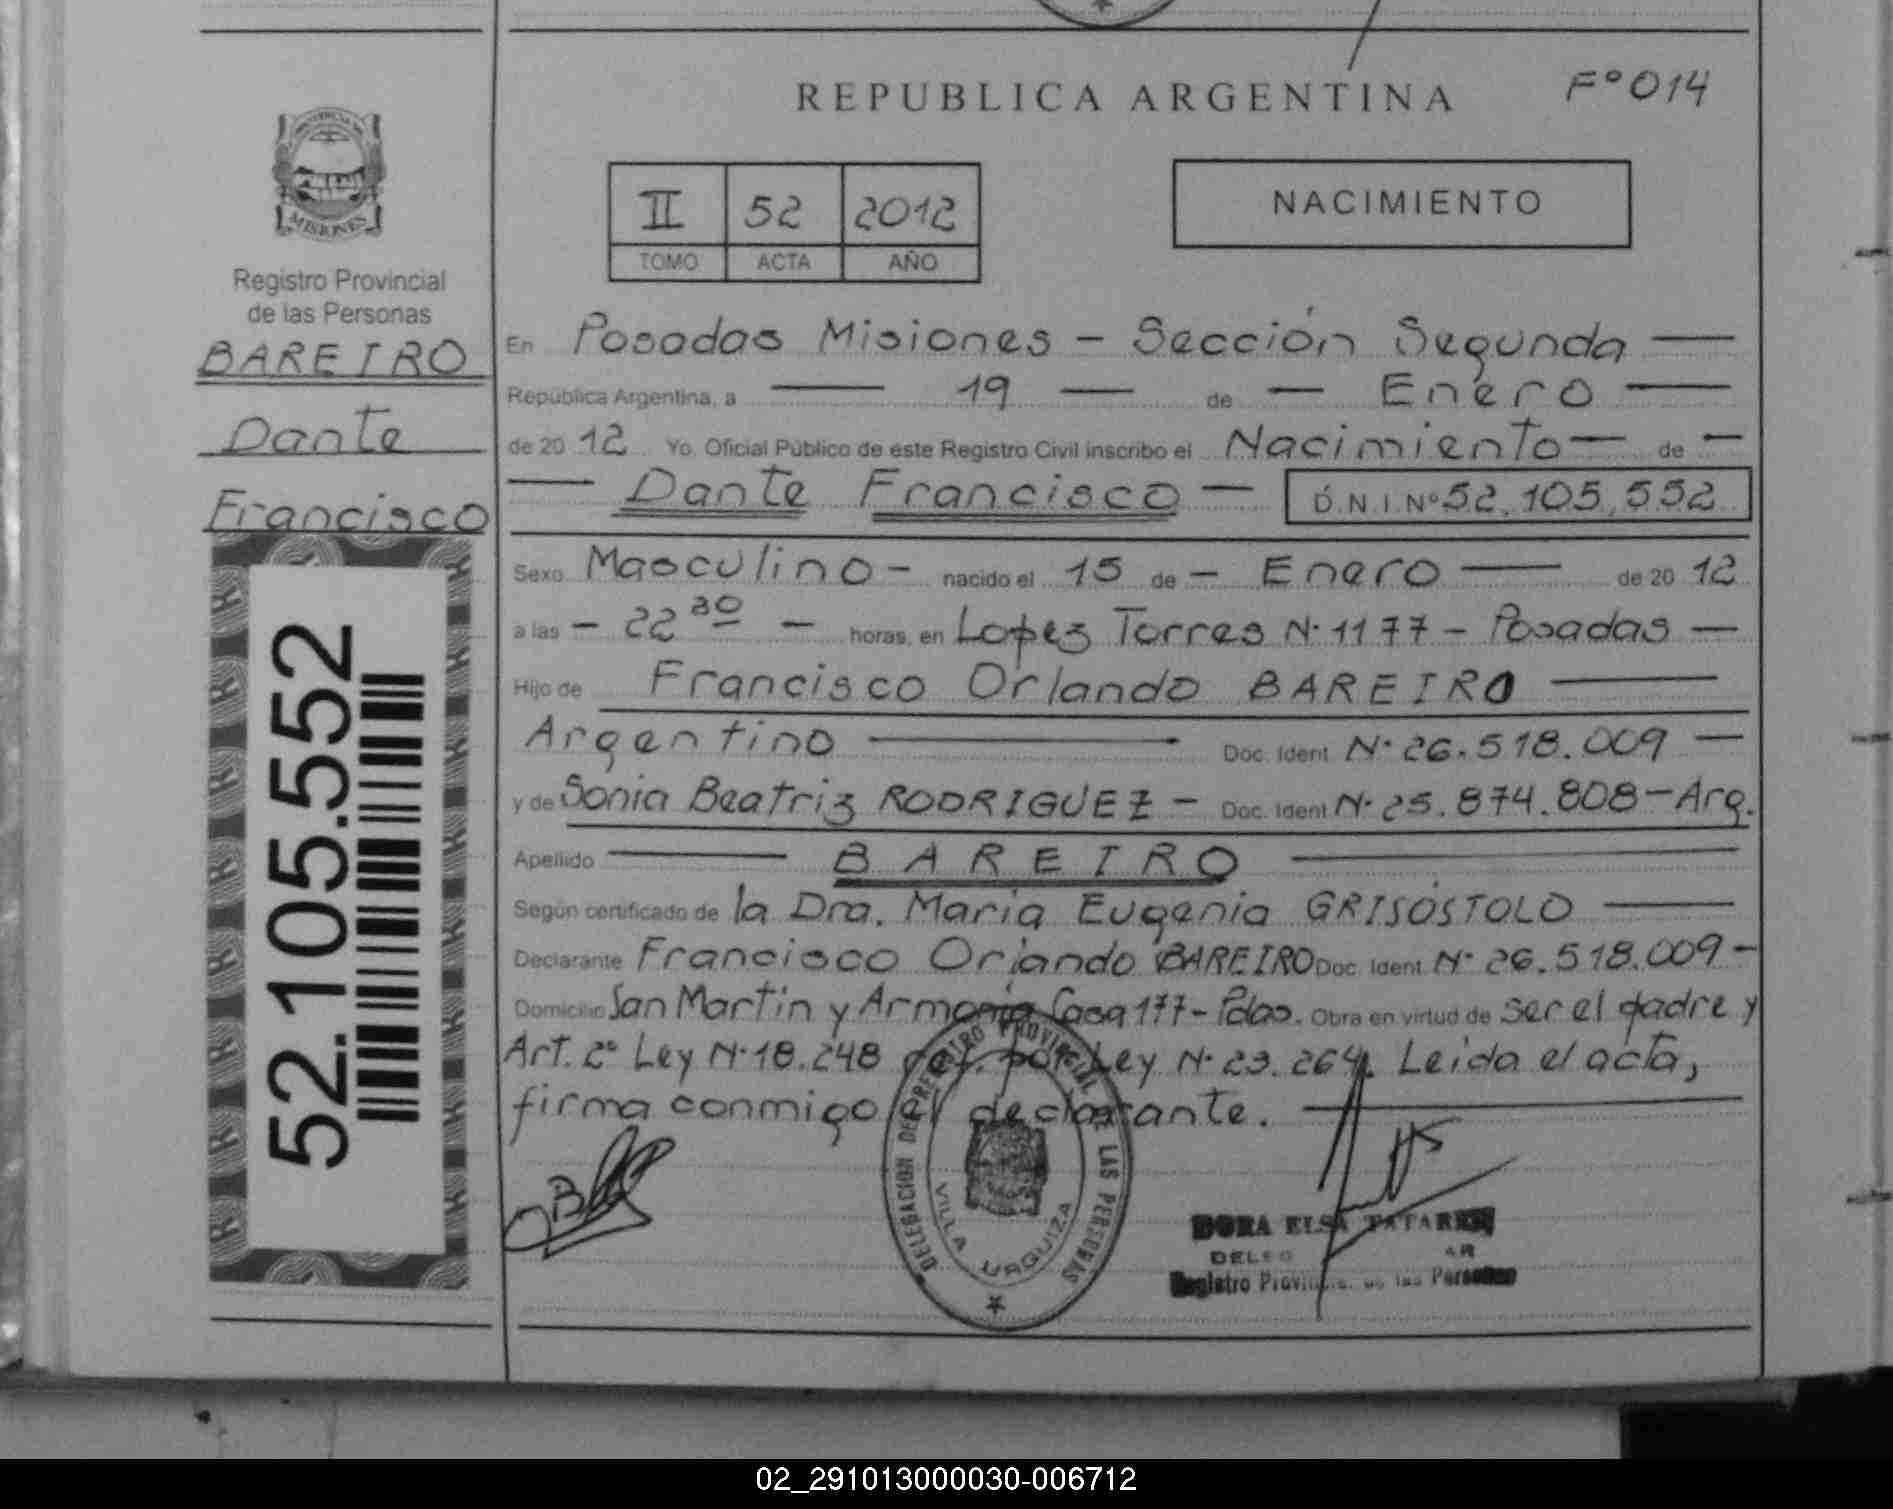 REPUBLICA ARGENTINA
Fº 014
PROVINCIA DE
MISIONES
Registro Provincial
de las Personas
BAREIRO
Dante
Francisco
52.105.552
II 52 2012
TOMO ACTA AÑO
NACIMIENTO
En Posadas Misiones - Sección Segunda
República Argentina, a 19 de Enero
de 2012 Yo, Oficial Público de este Registro Civil inscribo el Nacimiento de
Dante Francisco D.N.I. Nº 52.105.552
Sexo Masculino - nacido el 15 de - Enero de 2012
a las - 22 30 - horas, en Lopez Torres N° 1177 - Posadas
Hijo de Francisco Orlando BAREIRO
Argentino Doc. Ident. N° 26.518.009
y de Sonia Beatriz RODRIGUEZ - Doc. Ident. N° 25.874.808 - Arg.
Apellido BAREIRO
Según certificado de la Dra. María Eugenia GRISÓSTOLO
Declarante Francisco Orlando BAREIRO Doc. Ident. N° 26.518.009 -
Domicilio San Martín y Armonia Casa 177 - Pdas. Obra en virtud de ser el padre y
Art. 2° Ley N° 18.248 por Ley N° 23.264. Leida el acta,
firma conmigo el declarante.
DELEGACION DE REGISTRO PROVINCIAL DE LAS PERSONAS
VILLA URQUIZA
DORA ELSA
Registro de las Personas
02_291013000030-006712